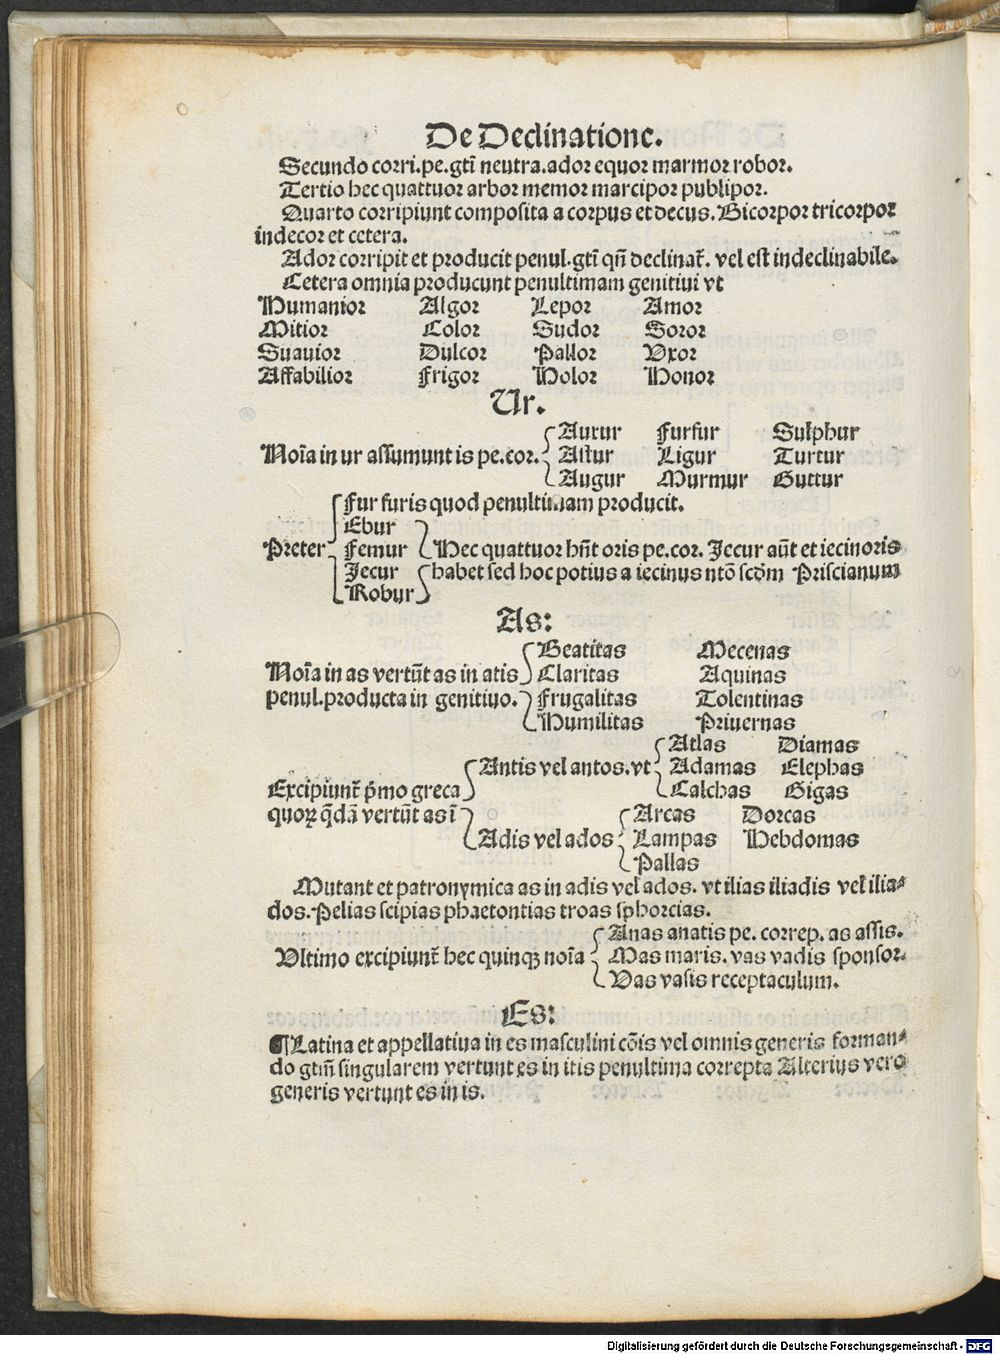 De Declinatione.
Secundo corri.pe.gtĩ neutra.ador equor marmor robor.
Tertio hec quattuor arbor memor marcipor publipor.
Quarto corripiunt composita a corpus et decus. Bicorpor tricorpor
indecor et cetera.
Ador corripit et producit penul.gtĩ qñ declinat̃. vel est indeclinabile.
Cetera omnia producunt penultimam genitiui vt
Humanior Algor Lepor Amor
Mitior Color Sudor Soror
Suauior Dulcor Pallor Vxor
Affabilior Frigor Holor Honor
Ur.
Auxur Furfur Sulphur
Noĩa in ur assumunt is pe.cor. Astur Ligur Turtur
Augur Murmur Guttur
Fur furis quod penultimam producit.
Ebur
Preter Femur Hec quattuor hñt oris pe.cor. Jecur aũt et iecinoris
Jecur habet sed hoc potius a iecinus ntõ scdm̃ Priscianum
Robur
As:
Beatitas Mecenas
Noĩa in as vertũt as in atis Claritas Aquinas
penul.producta in genitiuo. Frugalitas Tolentinas
Humilitas Priuernas
Atlas Diamas
Antis vel antos.vt Adamas Elephas
Excipiunt̃ p̃mo greca Calchas Gigas
quoꝝ q̃dã vertũt as ĩ Arcas Dorcas
Adis vel ados Lampas Hebdomas
Pallas
Mutant et patronymica as in adis vel ados. vt ilias iliadis vel ilia⸗
dos. Pelias scipias phaetontias troas sphorcias.
Anas anatis pe. correp. as assis.
Vltimo excipiunt̃ hec quinqꝫ noĩa Mas maris. vas vadis sponsor.
Vas vasis receptaculum.
Es:
¶ Latina et appellatiua in es masculini cõis vel omnis generis forman⸗
do gtm̃ singularem vertunt es in itis penultima correpta Alterius vero
generis vertunt es in is.
Digitalisierung gefördert durch die Deutsche Forschungsgemeinschaft - DFG